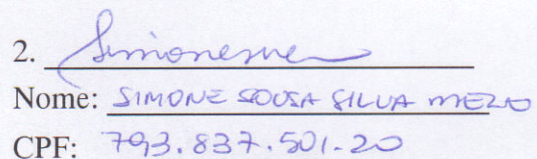 2. Simonesme
Nome: SIMONE SOUSA SILVA MELO
CPF: 793.837.501-20